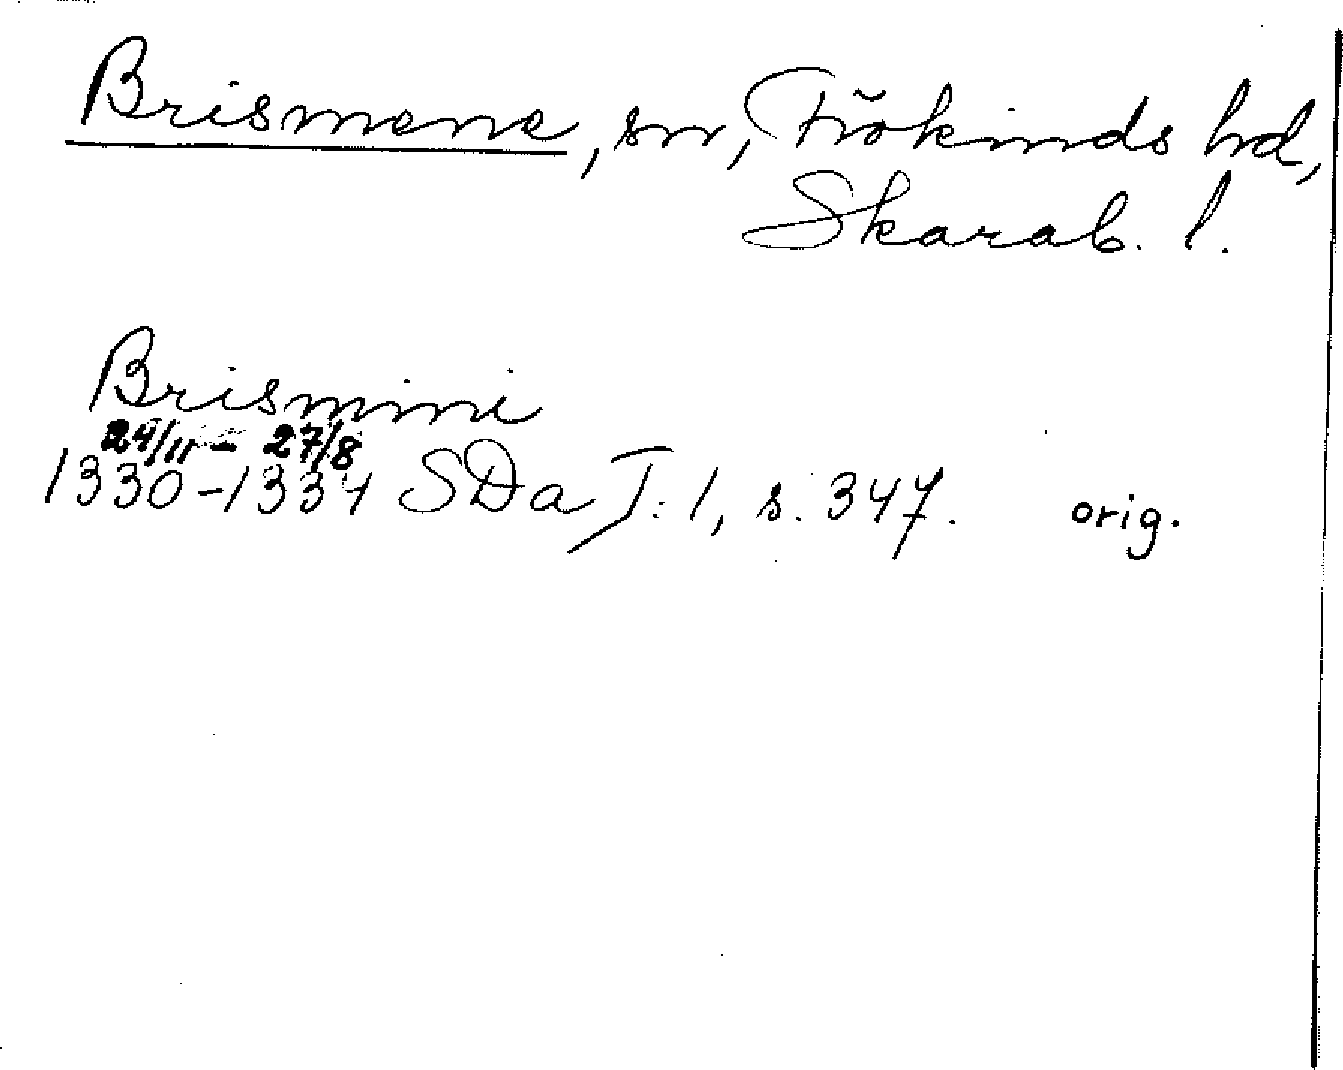 Brismene, sn, Frökinds hd,
Skarab. l.
Brismini
24/11 - 27/8
1330-1334 SDa T. 1, s. 347. orig.